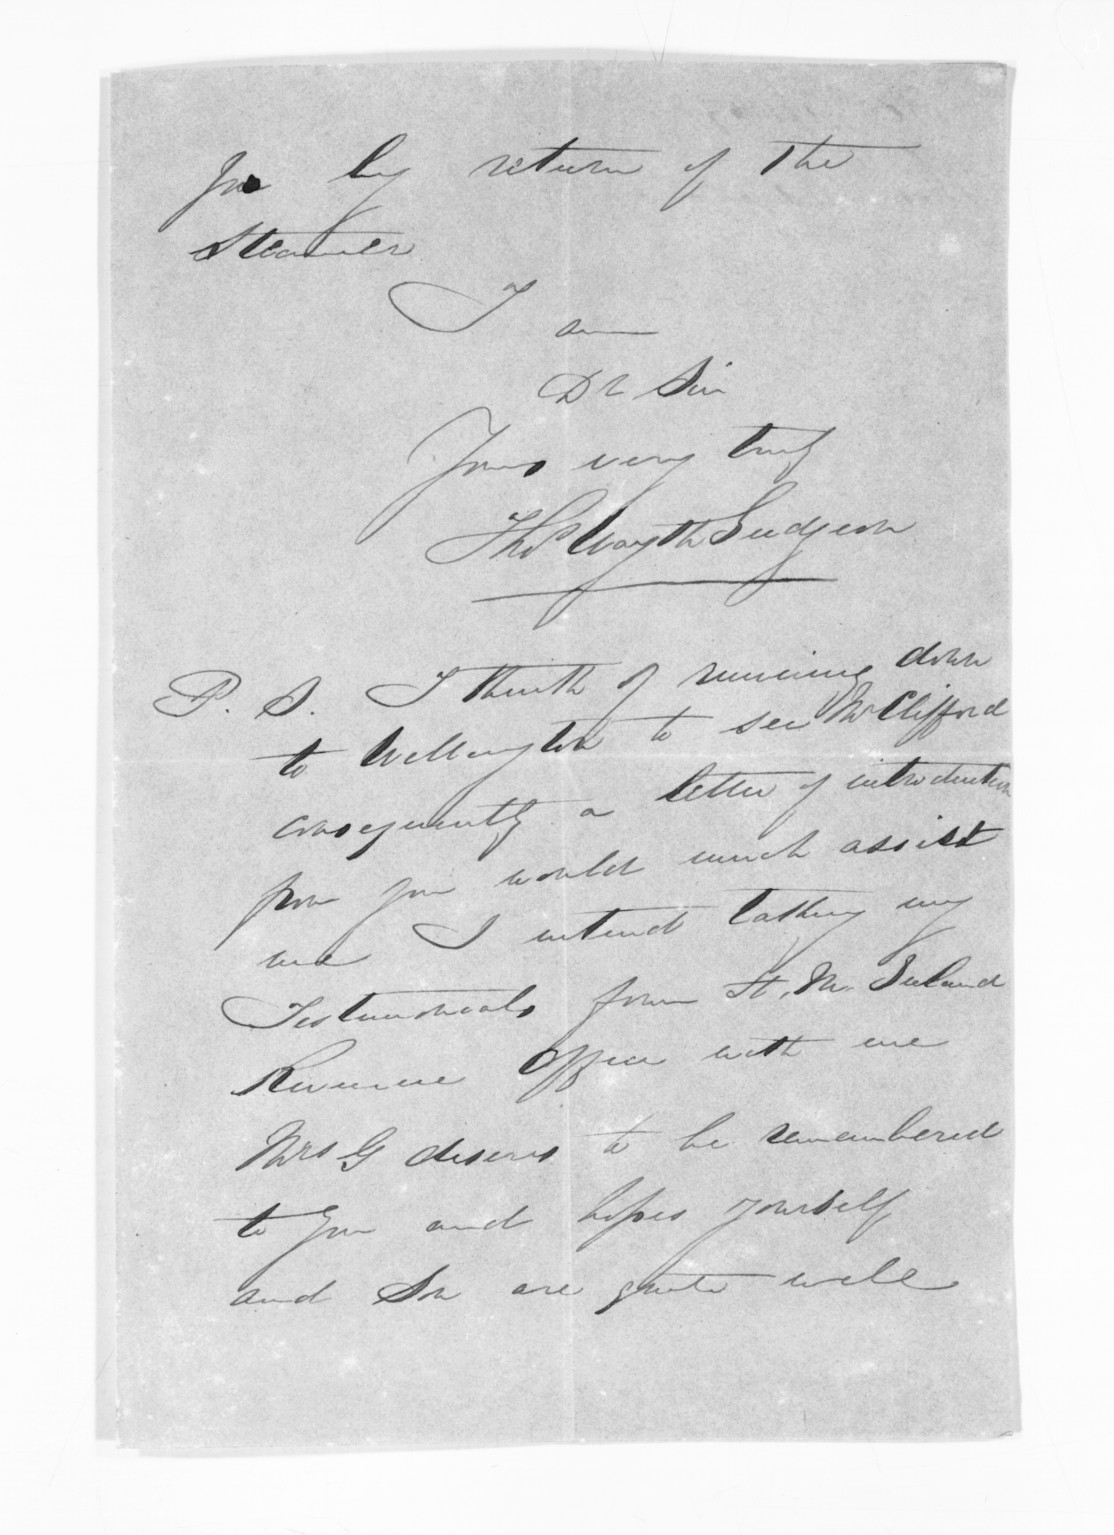 You by return of the
Steamer
I am
Dr Sir
Yours very truly
Thos Wayth Gudgeon
P. S. I think of running down
to Wellington to see Mr Clifford
consequently a letter of introduction
from you would much assist
me I intend taking my
Testimonials from H. M. Inland
Revenue Office with me
Mrs G desires to be remembered
to you and hopes yourself
and Son are quite well